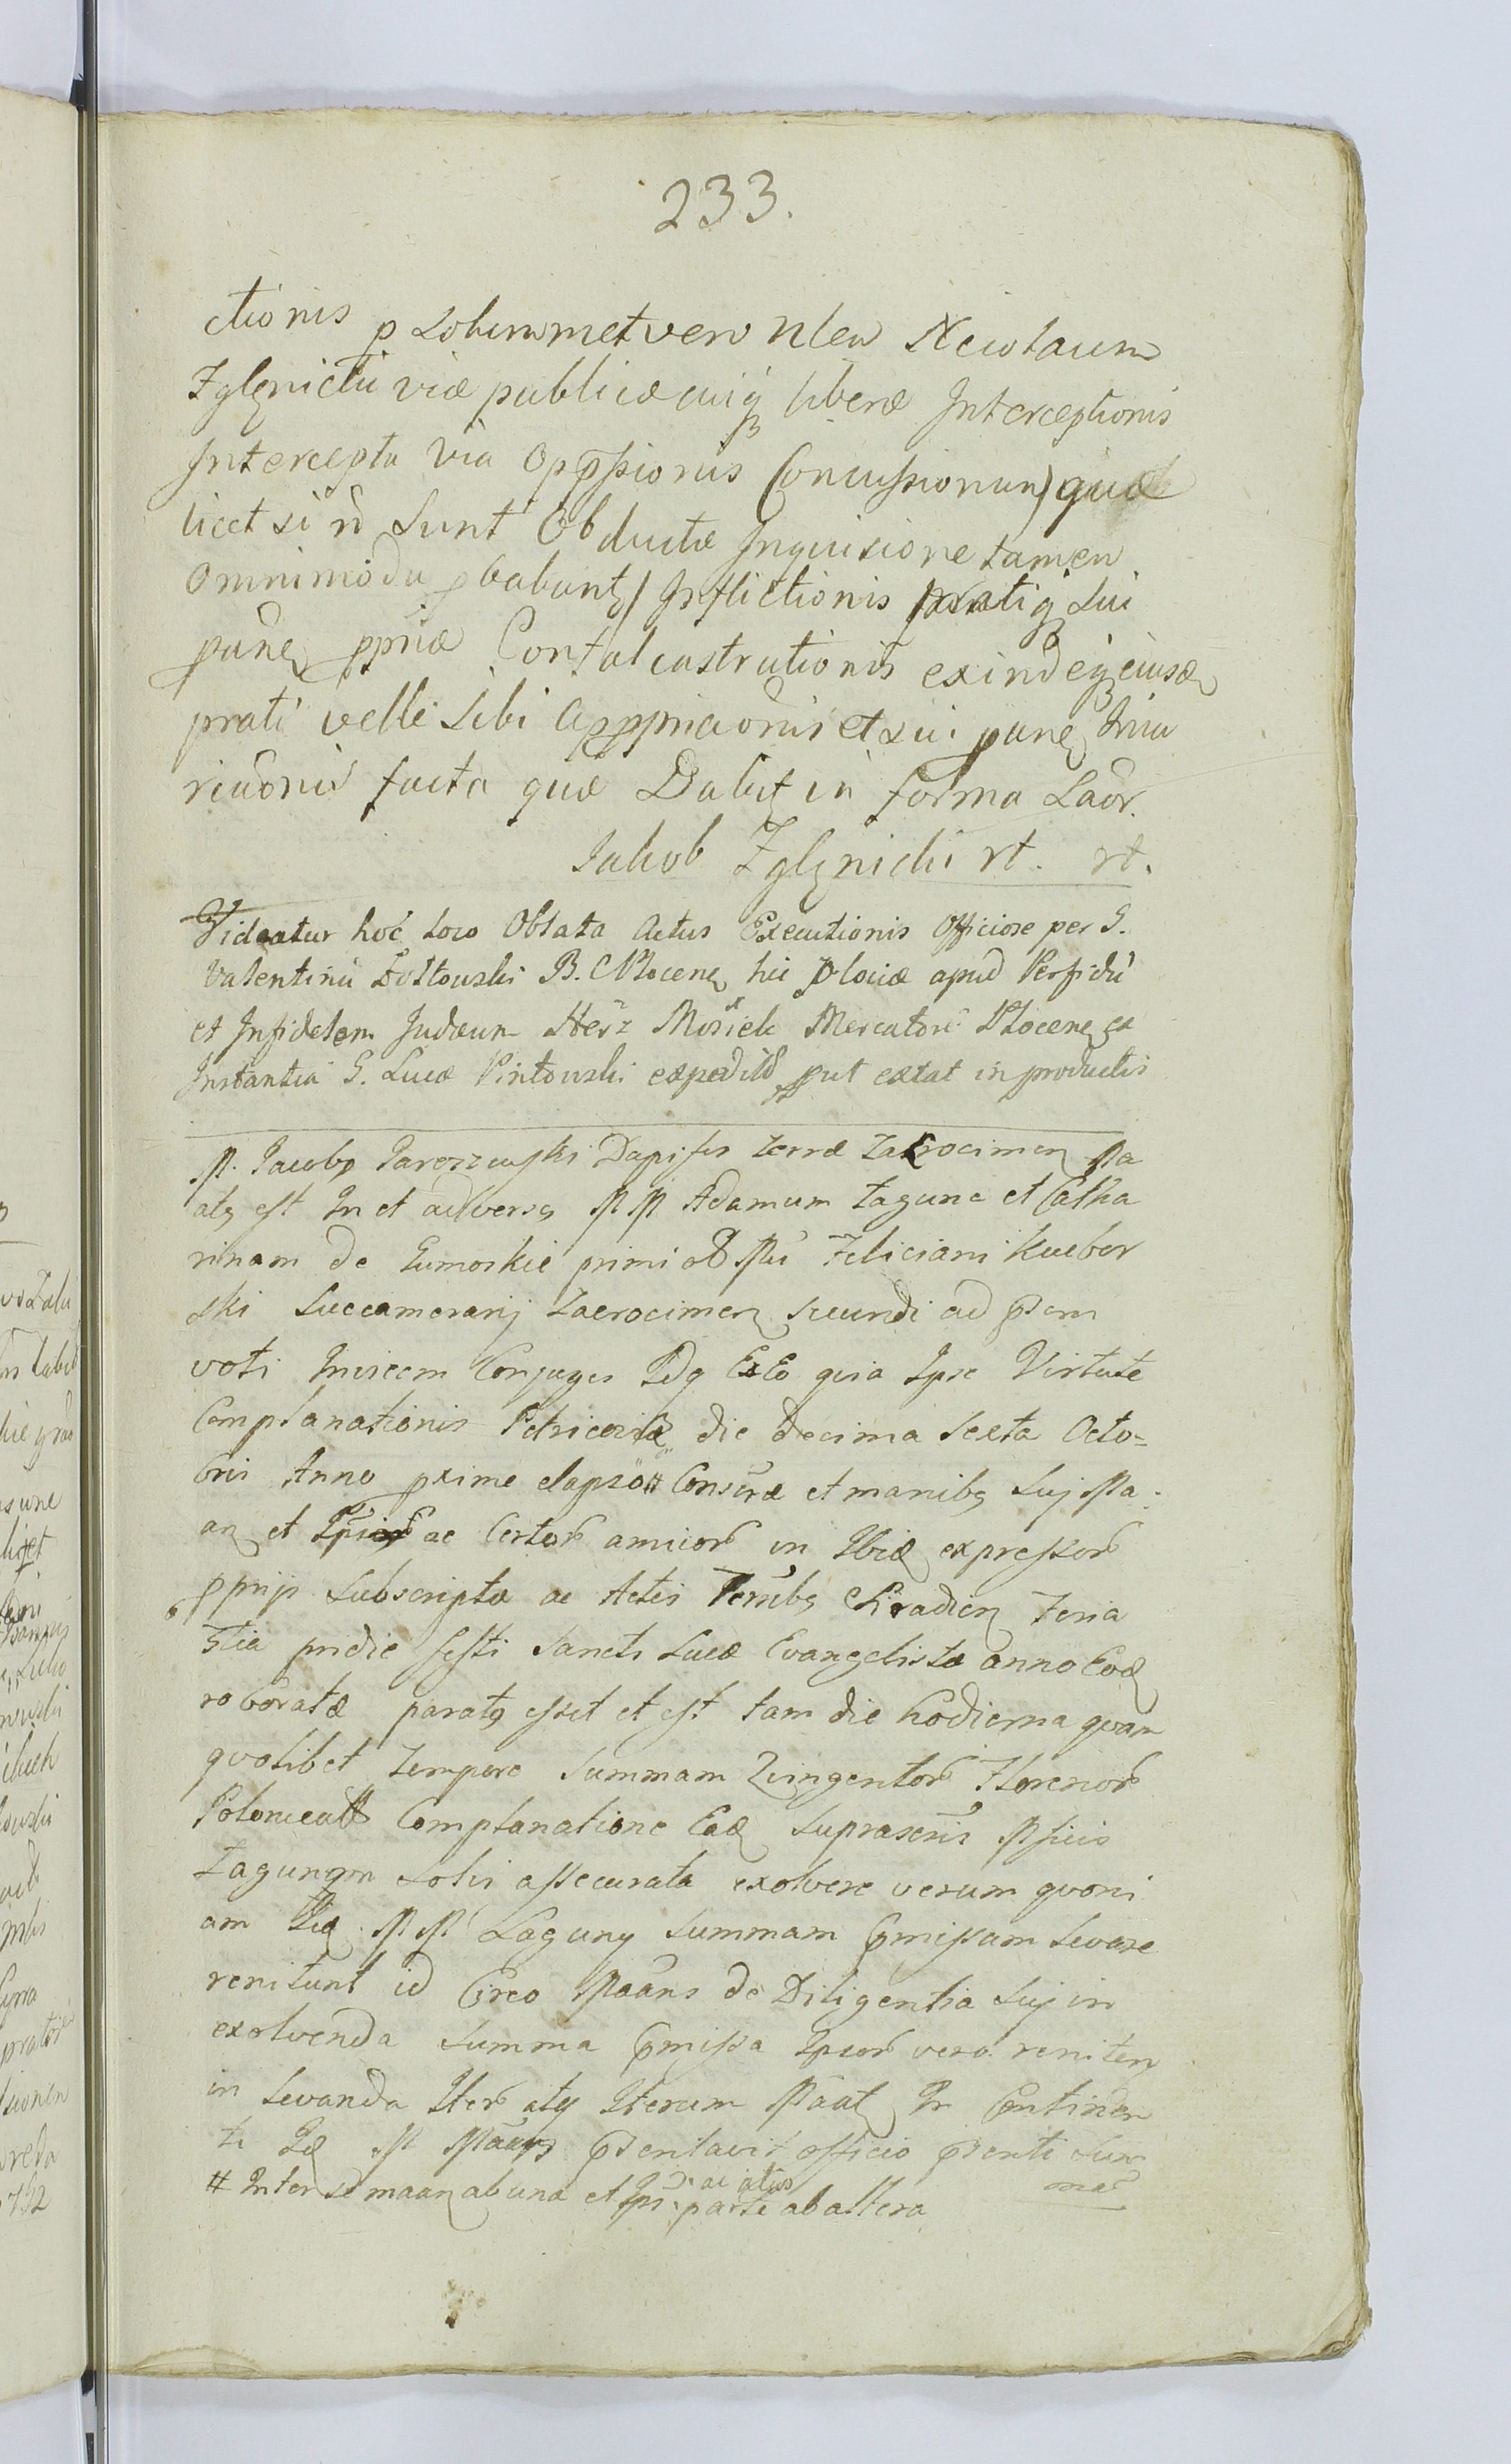 233.
ctionis p solummet vero Nlem Nicolaum
Zglenicki viæ publicæ cuiq liberæ Interceptionis
Intercepta via Oppssionis Concussionum) quæ
licet si n̄ sunt Obductæ Inquisione tamen
Omnimoda pbabunt / Inflictionis pratiq sui
pane ppriæ Contalcastrationis exindeq eiusd
prati velle sibi Apppriaonis et sui pane
riaonis facta quæ Dabit in forma Laōr.
Jakob Zglenicki rt. rt.
Videatur hoc loco Oblata Actus Executionis Officiose per G.
Valentinū B. C. Plocen hic Plociæ apud Perfidū
et Infidelem Judæum Herz Mosiek Mercatorē Plocen ea
Instantia G. Lucæ Pintowski expediti put extat in productis
M. Jacobq Jarezzewski Dapifer terræ Zakrocimen Ma
atq est In et adversq M M Adamum Laguna et Catha
rinam de Lumoskie primi olb Mci Feliciani Kucbor
ski Succamerarij Zacrocimen secundi ad psens
voti Invicem Conjuges Idq Ex Eo quia Ipse Virtute
Complanationis Petricoviæ die decima sexta Octo=
bris Anno pxime elapso # Conscræ et manibq suj Ma
an et ac Certor amicor in Ibid expressor
pprijs subscriptæ ac Actis Tembq Siradien Feria
3tia pridie festi Sancti Lucæ Evangelistæ anno Eod
roboratæ paratq esset et est tam die hodierna quam
quolibet tempore summam Quingentor Florenor
Polonical Complanatione Ead suprascris Mficis
Lagungom solvi assecurata exolvere verum quoni
am Iid M M Laguny summam pmissam levare
renitunt id Circo Maans de Diligentia suj in
exolvenda summa pmissa Ipsor vero reniten
in levanda Iter atq Iterum Maat In Continen
ti Id M Maans psentavit officio psenti sum
mā
# Inter se maan ab una et Ips. D. ac alios parte ab altera